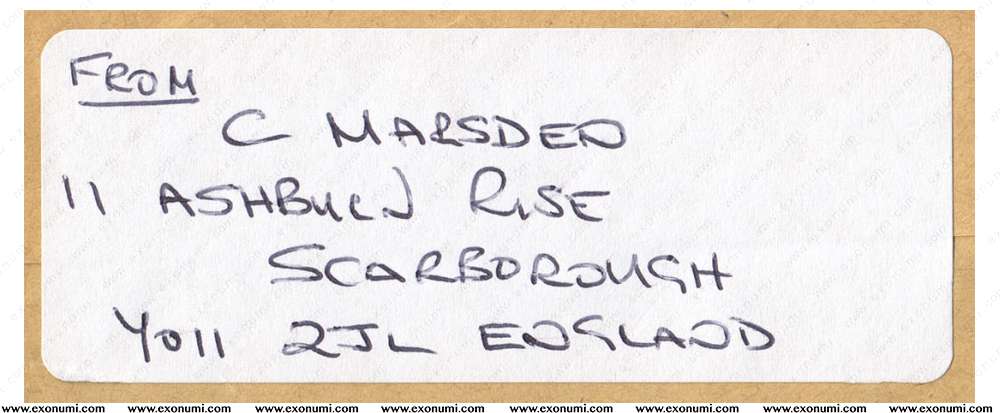 FROM
C MARSDEN
11 ASHBURN RISE
SCARBOROUGH
YO11 2JL ENGLAND
www.exonumi.com www.exonumi.com www.exonumi.com www.exonumi.com www.exonumi.com www.exonumi.com www.exonumi.com www.exonumi.com